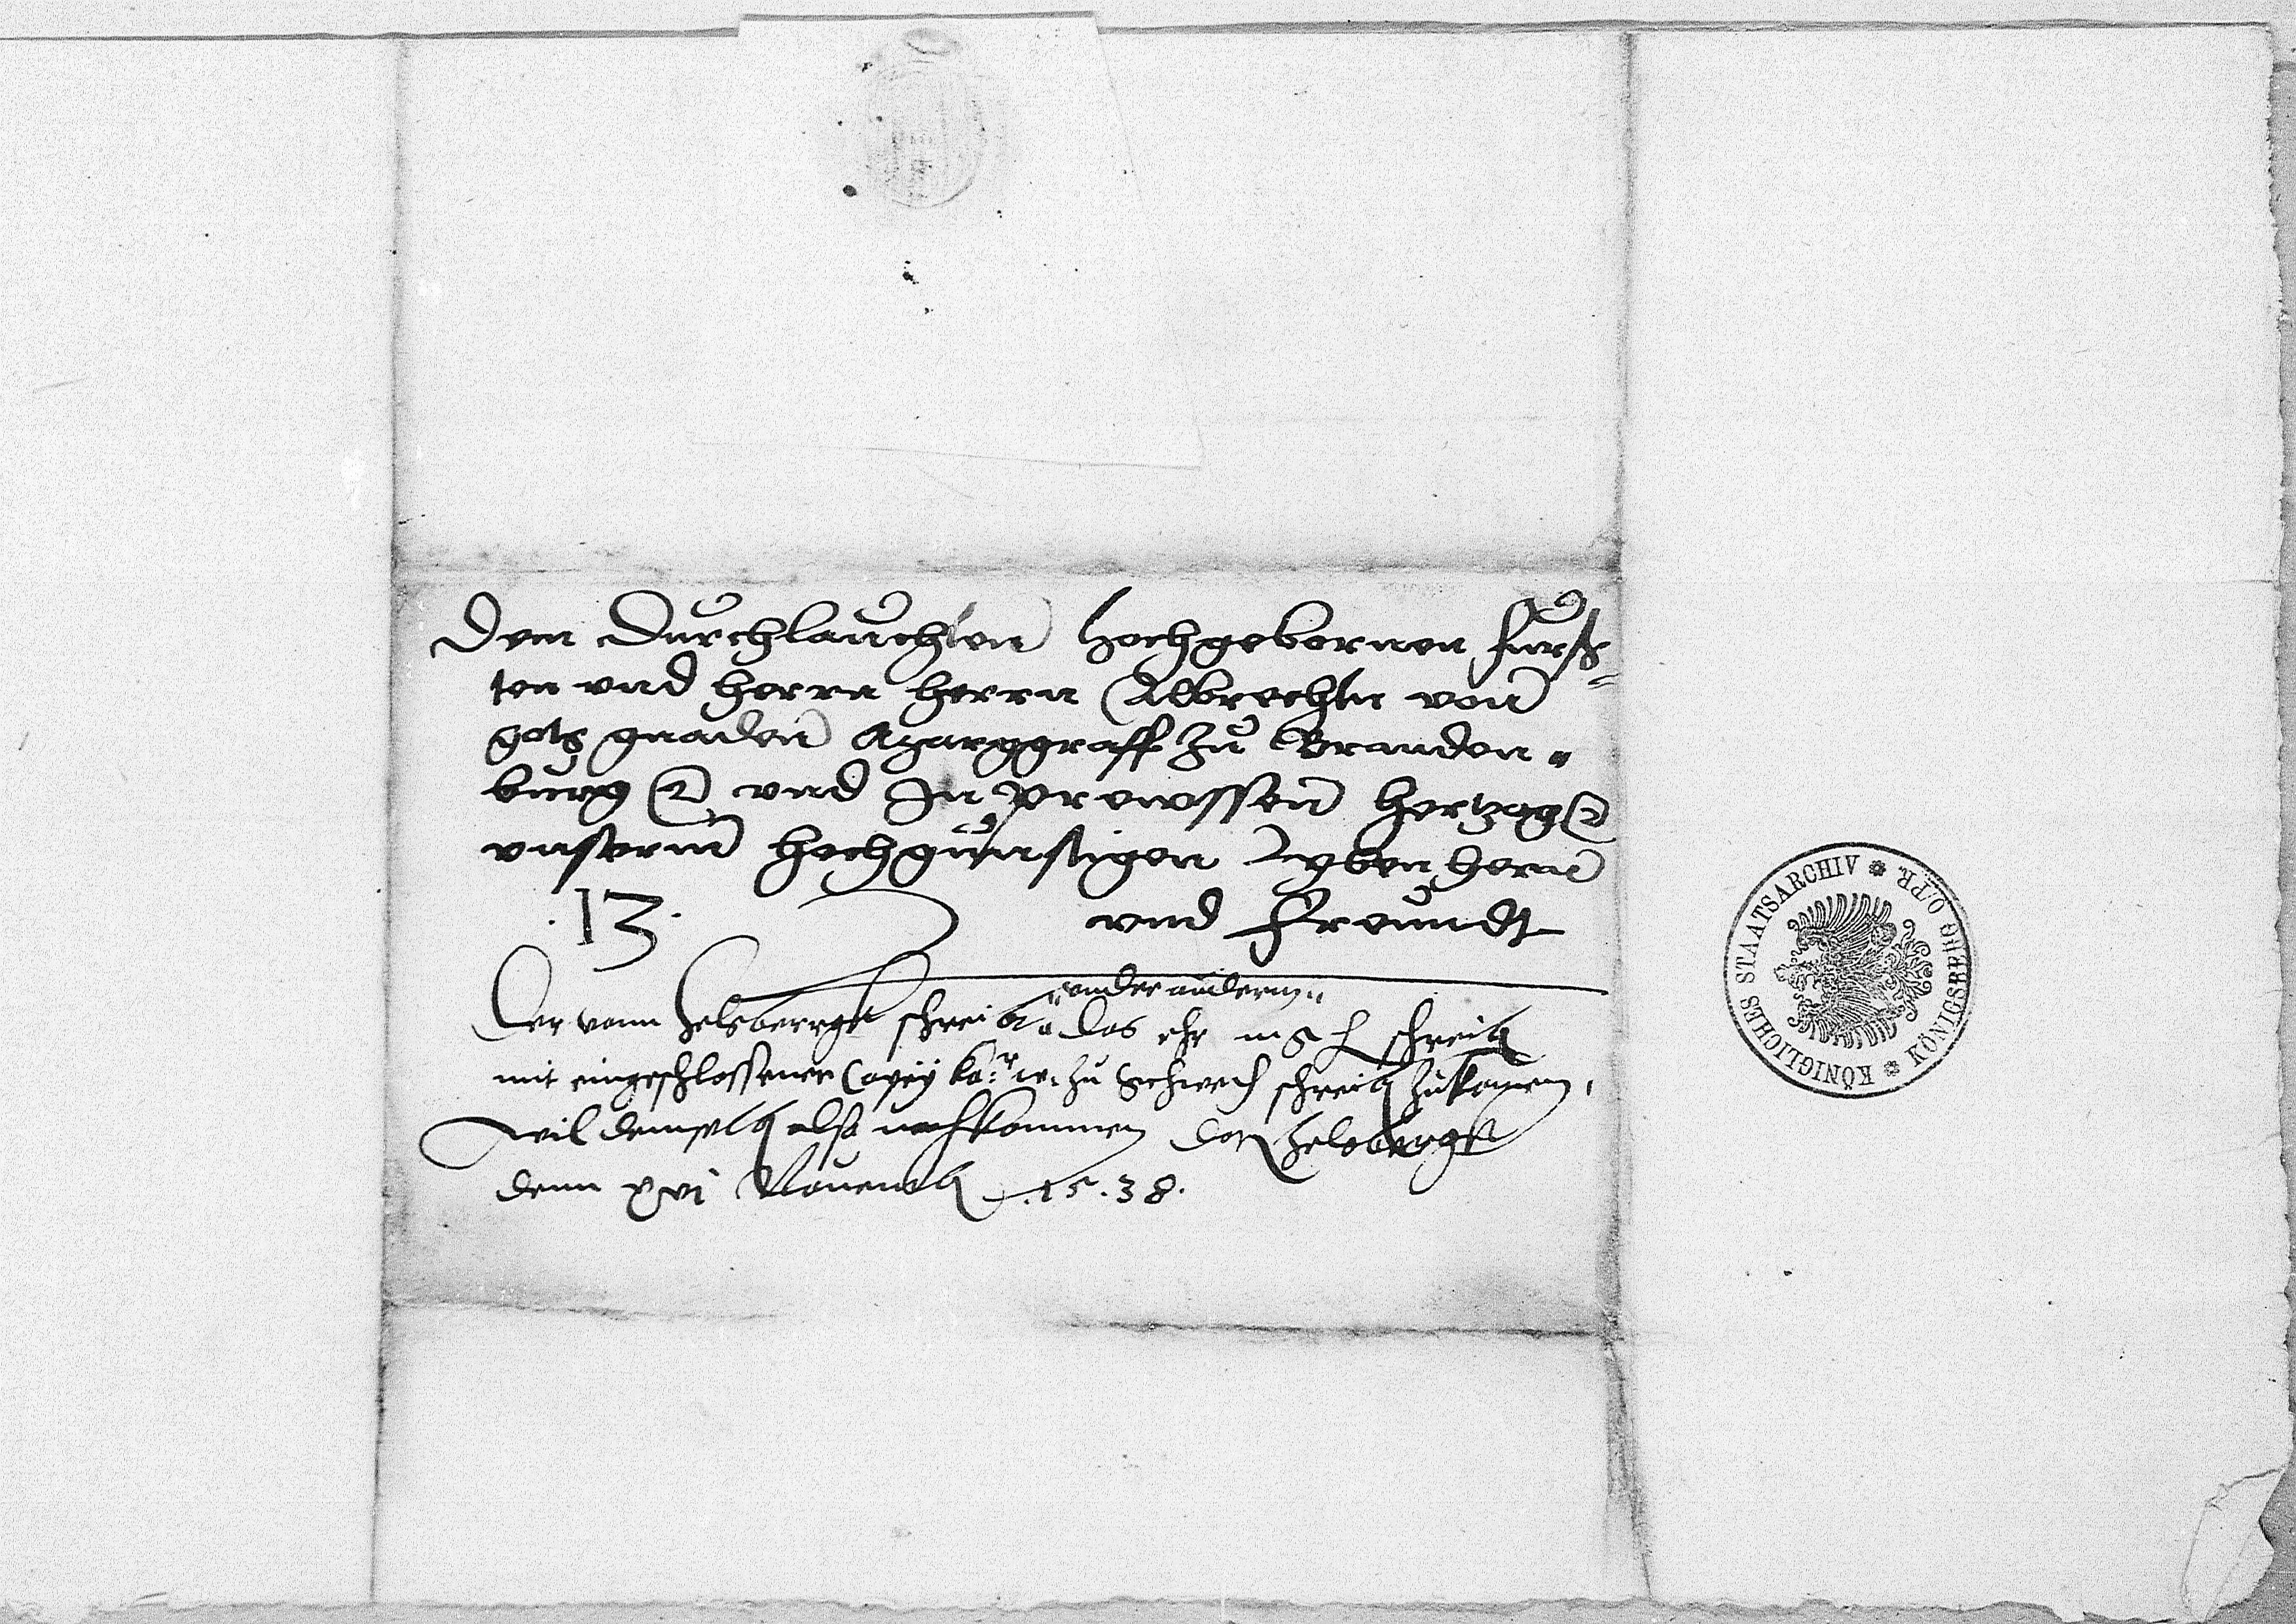 Dem Durchlauchten Hochgebornen furs=
ten vnd herrn herrn Albrechtn von
gots gnaden Marggraff zu Branden=
burg vnd In prewssen hertzog
vnserm hochgunstigen lyben hern
.13. vnd freundt
vnder anderm
Der vom helsbergk schreibt das ehr m g h schreib
mit eingeschlossener Copey ko: zu Schwed schreib zukomen,
wil demselb also nachkommen dat helsbergk
denn xvi Nouemb .15.38.
KÖNIGLICHES STAATSARCHIV * KÖNIGSBERG O/PR. *